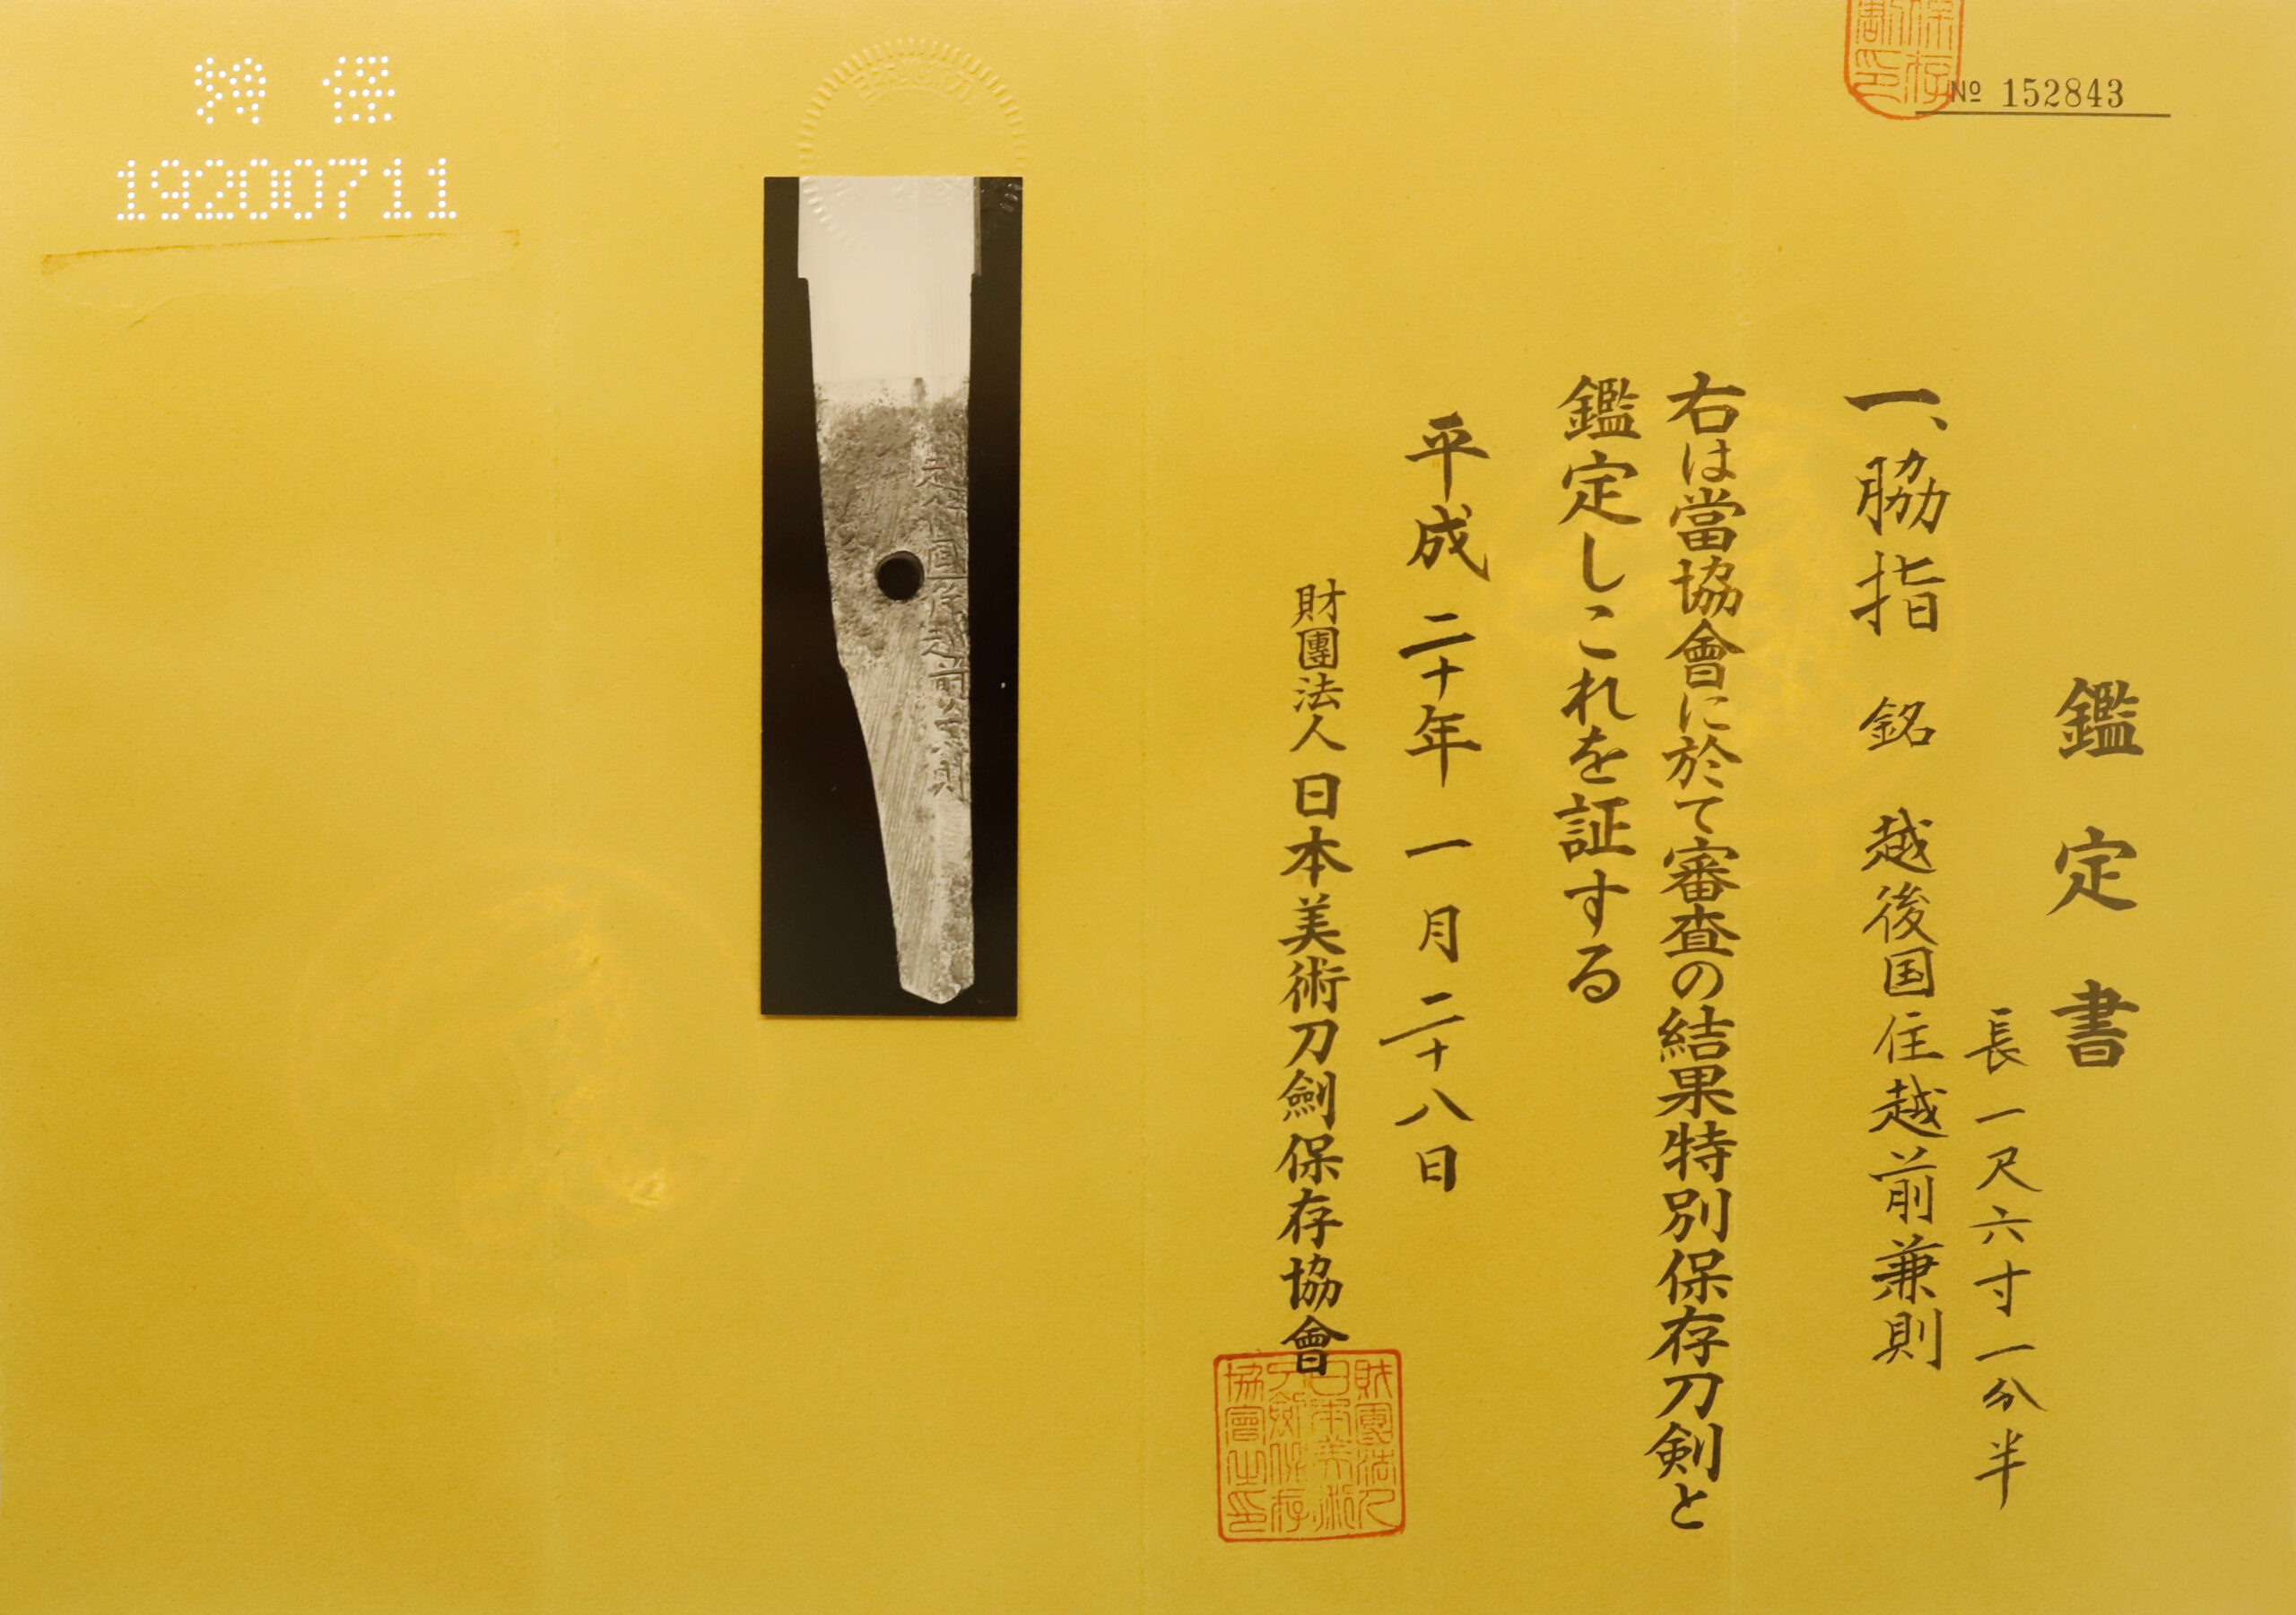 鑑定書
長一尺六寸一分半
一、脇指 銘 越後国住越前兼則
右は當協會に於て審査の結果特別保存刀剣と
鑑定しこれを証する
平成二十年一月二十八日
財團法人日本美術刀劍保存協會
財團法人
日本美術
刀劍保存
協會之印
№ 152843
特保
19200711